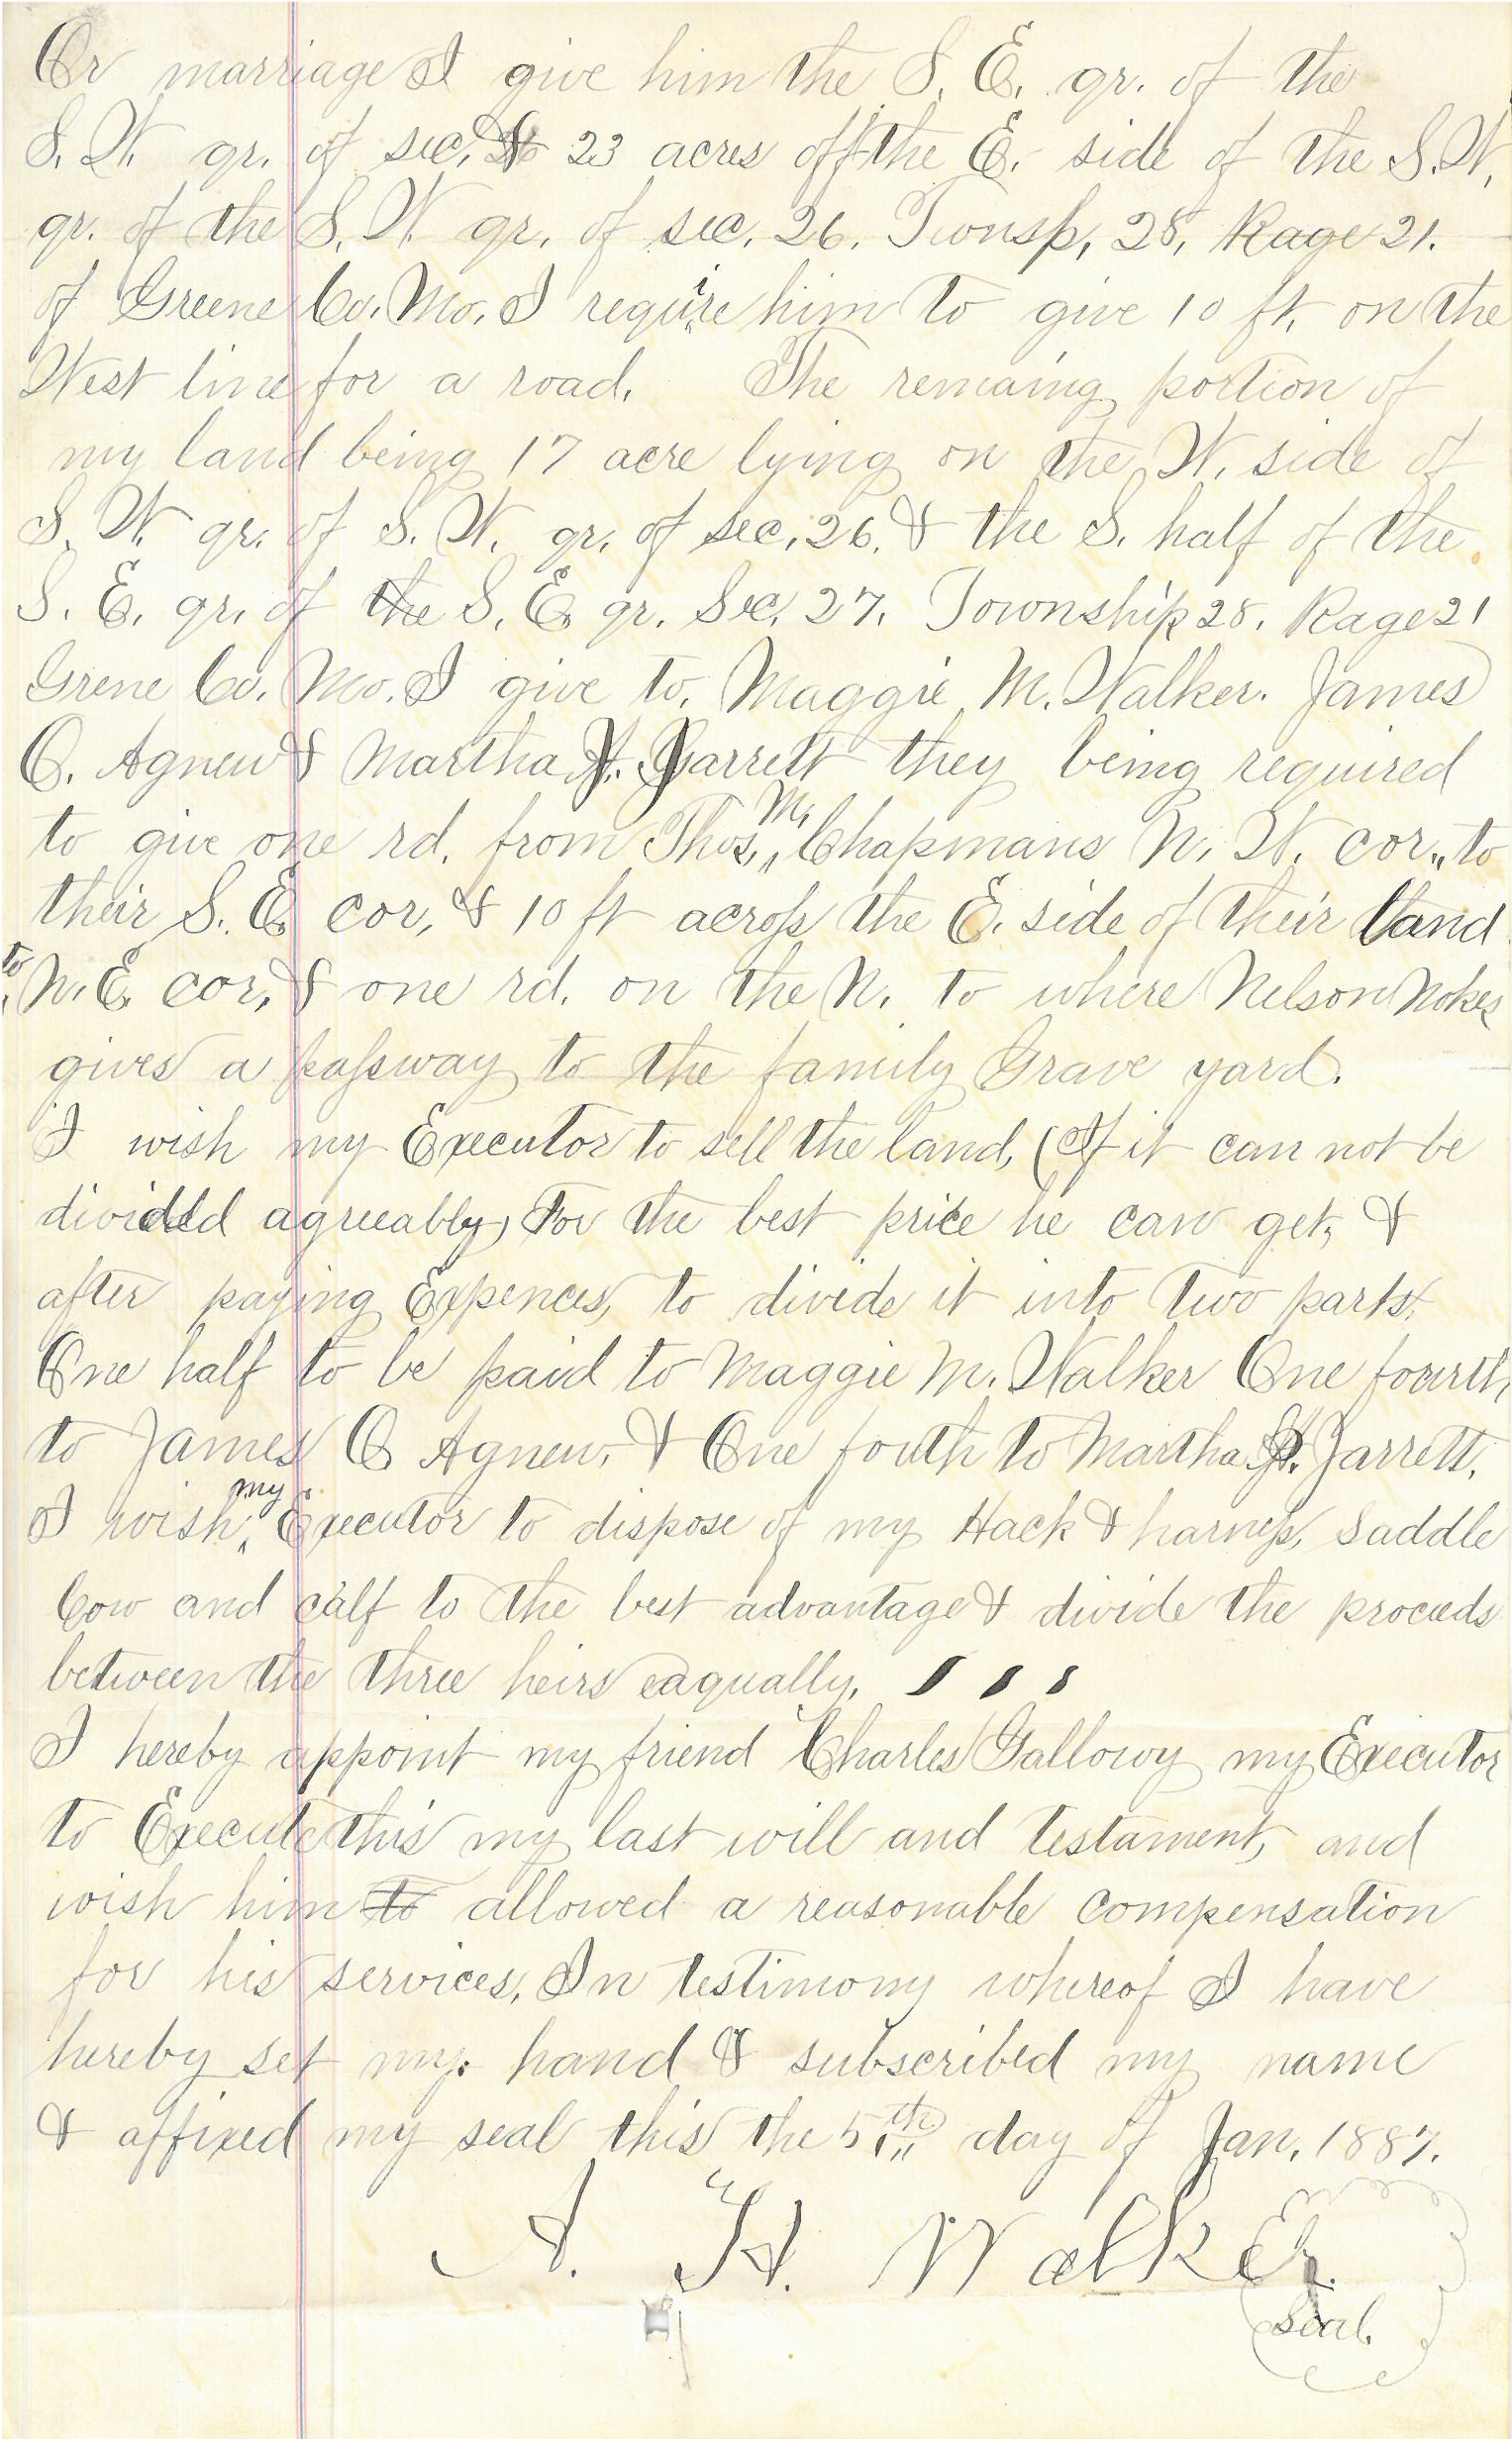 Or marriage I give him the S. E. qr. of the
S. W. qr. of sec. 26 & 23 acres off the E. side of the S. W.
qr. of the S. W qr. of sec. 26. Twonsp, 28, Rage 21.
of Greene Co. Mo. I require him to give 10 ft. on the
West line for a road. The remaing portion of
my land being 17 acre lying on the W. side of
S. W. qr. of S. W. qr. of sec. 26. & the S. half of the
S. E. qr. of the S. E qr. Sec. 27. Township 28. Rage 21
Grene Co. Mo. I give to. Maggie M. Walker. James
C. Agnew & Martha J. Jarrett they being required
to give one rd. from Thos. M. Chapmans N. W. cor. to
their S. E. cor, & 10 ft across the E. side of their land
to N. E. cor, & one rd. on the N. to where Nelson Nokes
gives a passway to the family Grave yard.
I wish my Executor to sell the land, (If it can not be
divided agreeably) For the best price he can get, &
after paying Expences, to divide it into two parts.
One half to be paid to Maggie M. Walker One fourth
to James C Agnew, & One fouth to Martha J. Jarrett.
I wish my Executor to dispose of my Hack & harness, Saddle
Cow and calf to the best advantage & divide the proceeds
between the three heirs eaqually.
I hereby appoint my friend Charles Gallowy my Executor
to Execute this my last will and testament, and
wish him to allowed a reasonable compensation
for his services, In testimony whereof I have
hereby set my hand & subscribed my name
& affixed my seal this the 5th day of Jan. 1887.
A. H. Walker.
Seal.